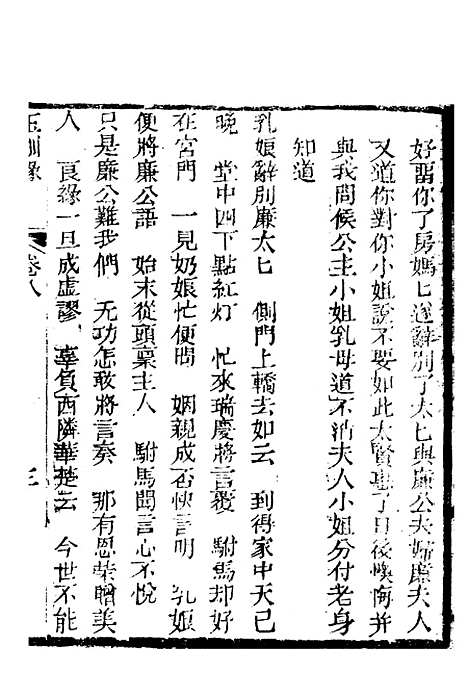 好畱你了房媽匕遂辭別了太匕與廉公夫婦廉夫人
又道你對你小姐說不要如此太賢惠了日後懊悔并
與我問候公主小姐乳母道不消夫人小姐分付老身
知道
乳娘辭別廉太匕 側門上轎去如云 到得家中天已
晚 堂中四下點紅灯 忙來瑞慶將言覆 駙馬却好
在宮門 一見奶娘忙便問 姻親成否快言明 乳娘
便將廉公語 始末從頭稟主人 駙馬聞言心不悅
只是廉公難我們 无功怎敢將言奏 那有恩荣贈美
人 良緣一旦成虛謬 辜負西隣華楚云 今世不能
玉釧緣 卷八 三